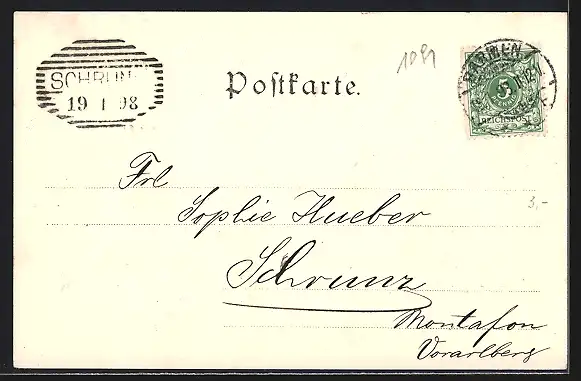 SCHRUNS
19 1 98
Postkarte.
BARMEN
5
REICHSPOST
Frl
Sophie Hueber
Schrunz
3,-
Montafon
Vorarlberg